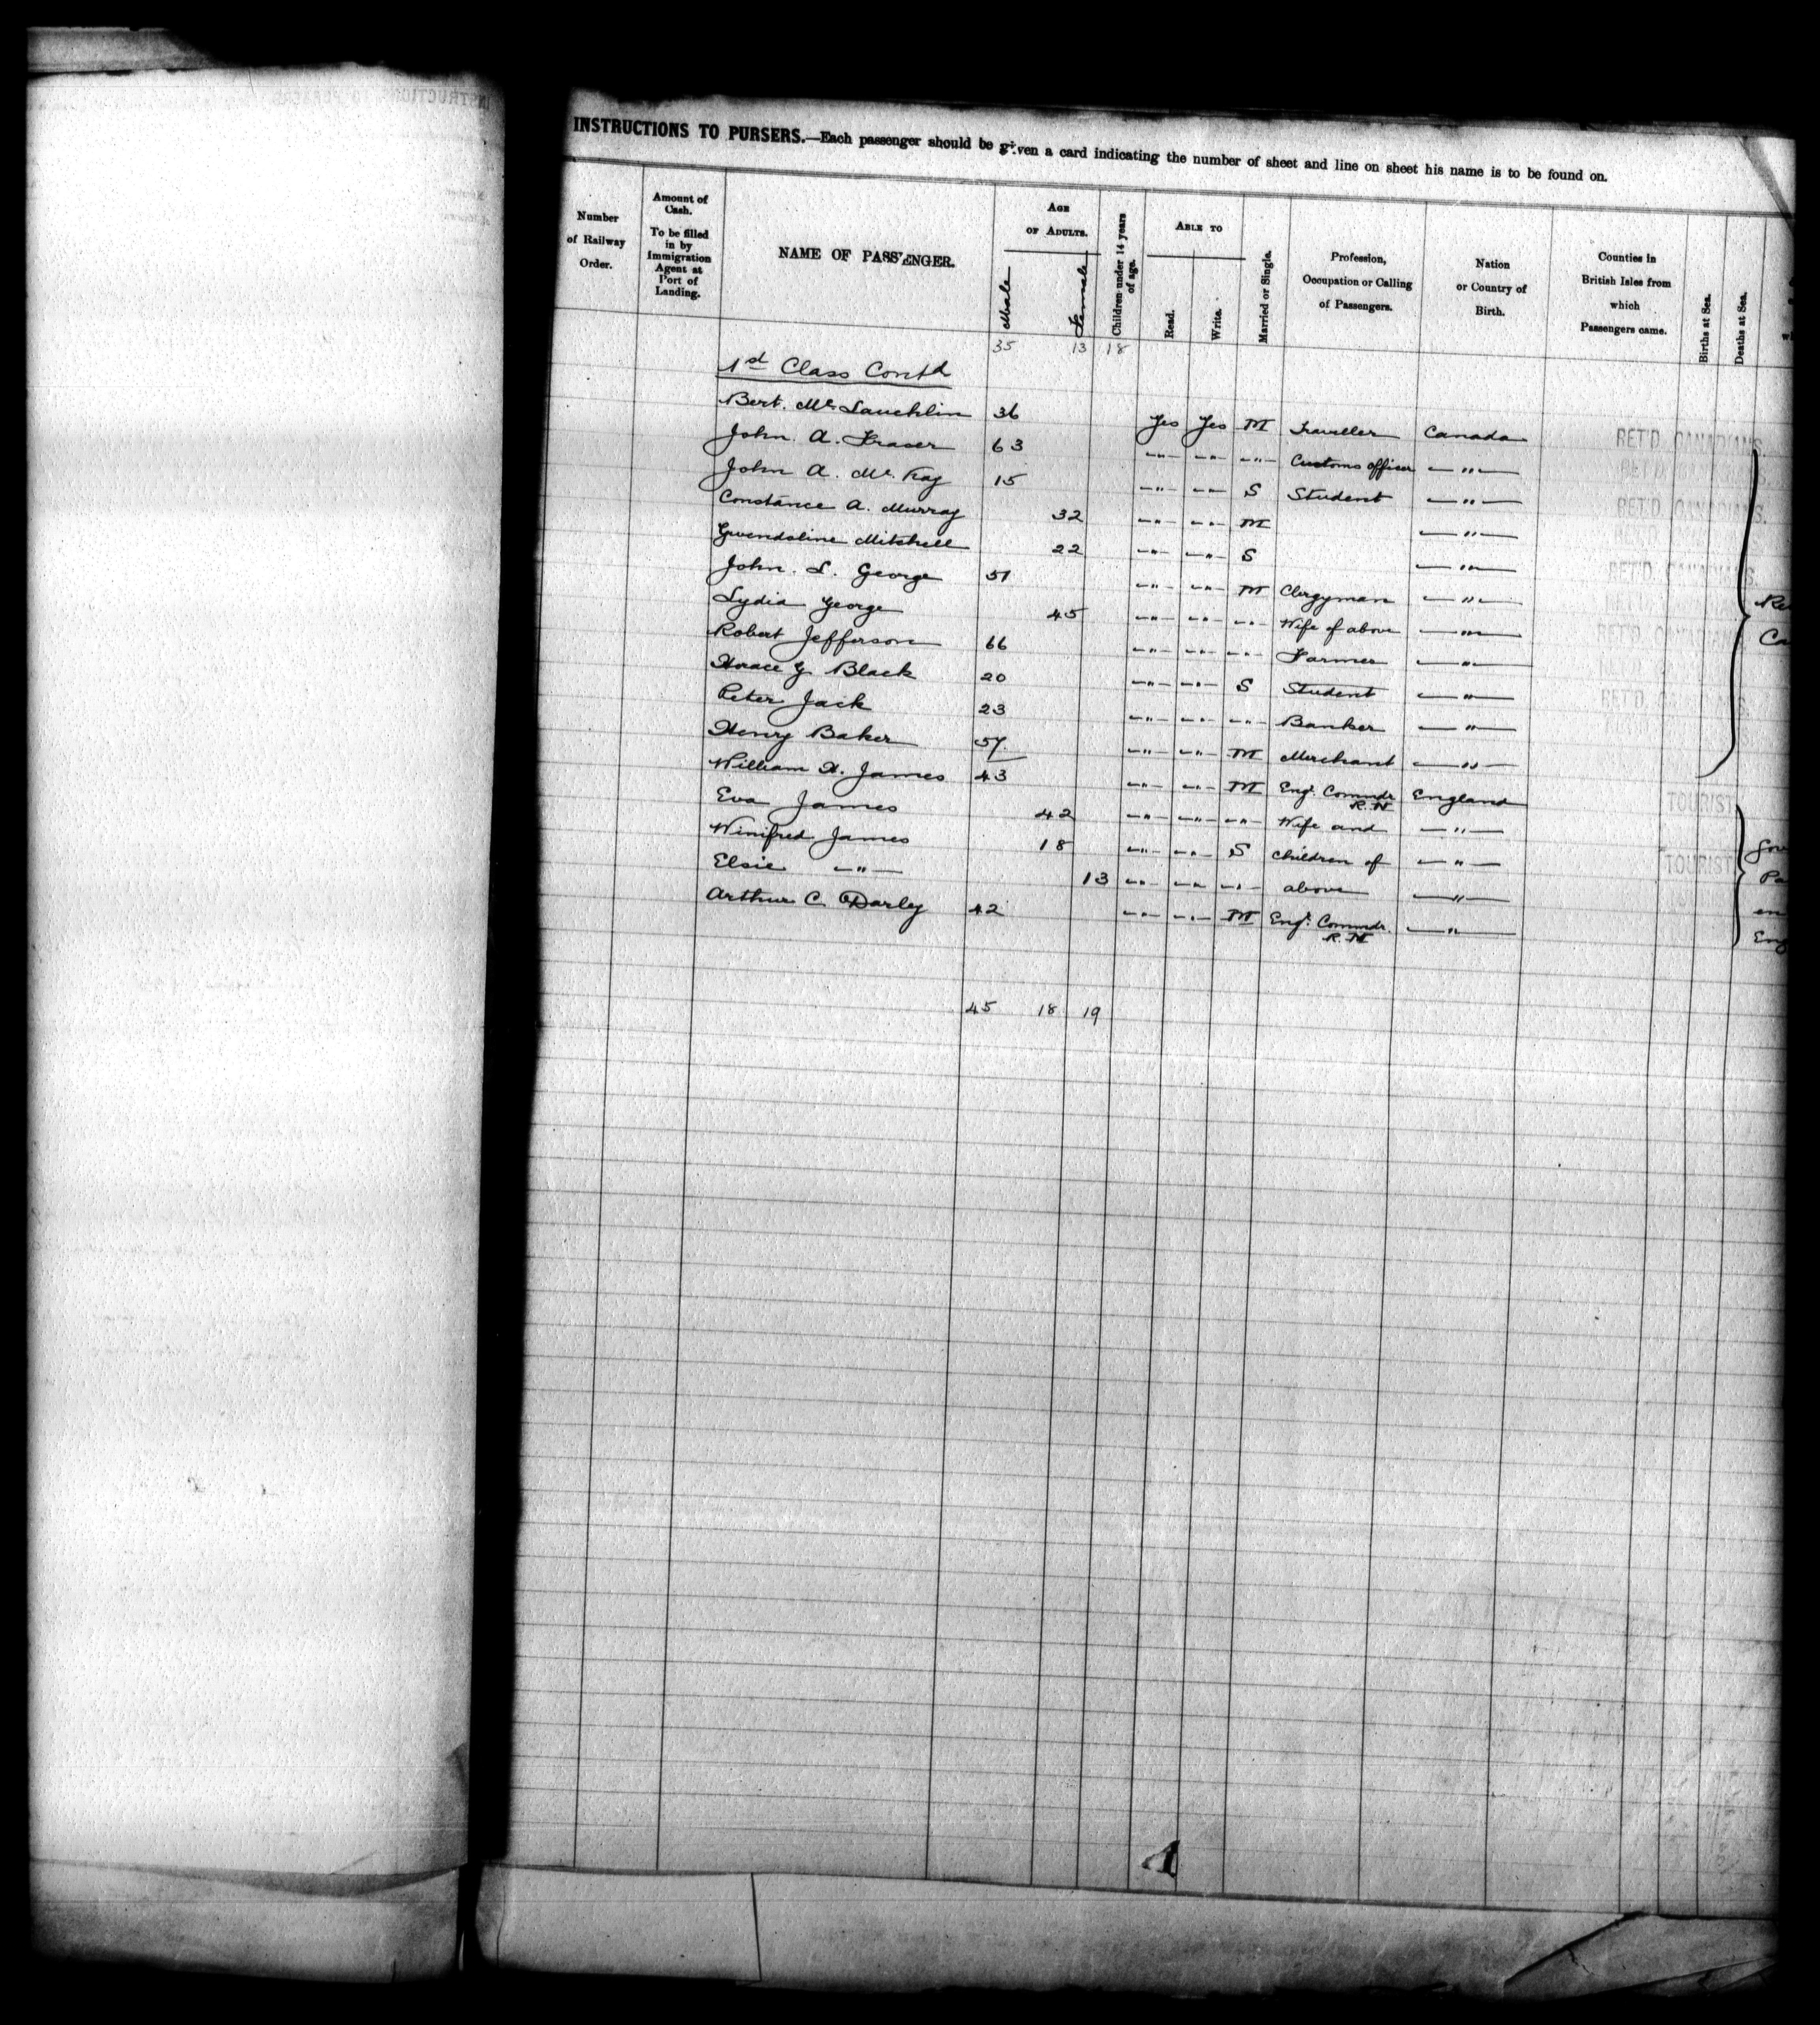 INSTRUCTIONS TO PURSERS.—Each passenger should be given a card indicating the number of sheet and line on sheet his name is to be found on.
Number of Railway Order.
Amount of Cash. To be filled in by Immigration Agent at Port of Landing.
NAME OF PASSENGER.
AGE OF ADULTS.
Male
Female
Children under 14 years of age.
ABLE TO
Read.
Write.
Married or Single.
Profession, Occupation or Calling of Passengers.
Nation or Country of Birth.
Counties in British Isles from which Passengers came.
Births at Sea.
Deaths at Sea.
35 13 18
1st Class Contd
Bert. McLauchlin 36 Yes Yes M Traveller Canada RET'D. CANADIANS.
John A. Fraser 63 —"— —"— —"— Customs officer —"— RET'D. CANADIANS.
John A. McKay 15 —"— —"— S Student —"— RET'D. CANADIANS.
Constance A. Murray 32 —"— —"— M —"— RET'D. CANADIANS.
Gwendoline Mitchell 22 —"— —"— S —"— RET'D. CANADIANS.
John. L. George 51 —"— —"— M Clergyman —"— RET'D. CANADIANS.
Lydia George 45 —"— —"— —"— Wife of above —"— RET'D. CANADIANS.
Robert Jefferson 66 —"— —"— —"— Farmer —"—
Horace G. Black 20 —"— —"— S Student —"— RET'D. CANADIANS.
Peter Jack 23 —"— —"— —"— Banker —"—
Henry Baker 57 —"— —"— M Merchant —"—
William H. James 43 —"— —"— M Engr. Commdr. R.N England TOURIST
Eva James 42 —"— —"— —"— Wife and —"—
Winifred James 18 —"— —"— S children of —"— TOURIST
Elsie —"— 13 —"— —"— —"— above —"—
Arthur C. Darley 42 —"— —"— M Engr. Commdr. R.N —"—
45 18 19